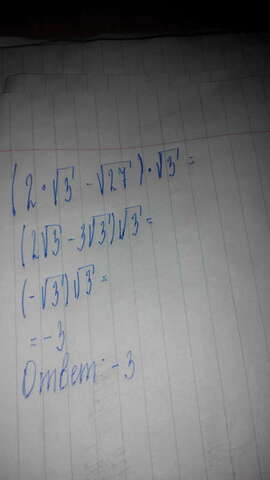 (2·√3 - √27)·√3 =
(2√3 - 3√3)√3 =
(-√3)√3 =
= -3
Ответ: -3